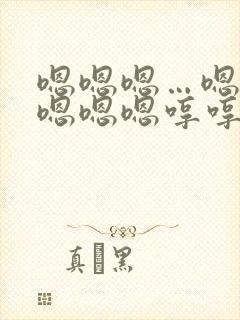 嗯嗯嗯…嗯
嗯嗯嗯哼哼
真 黑